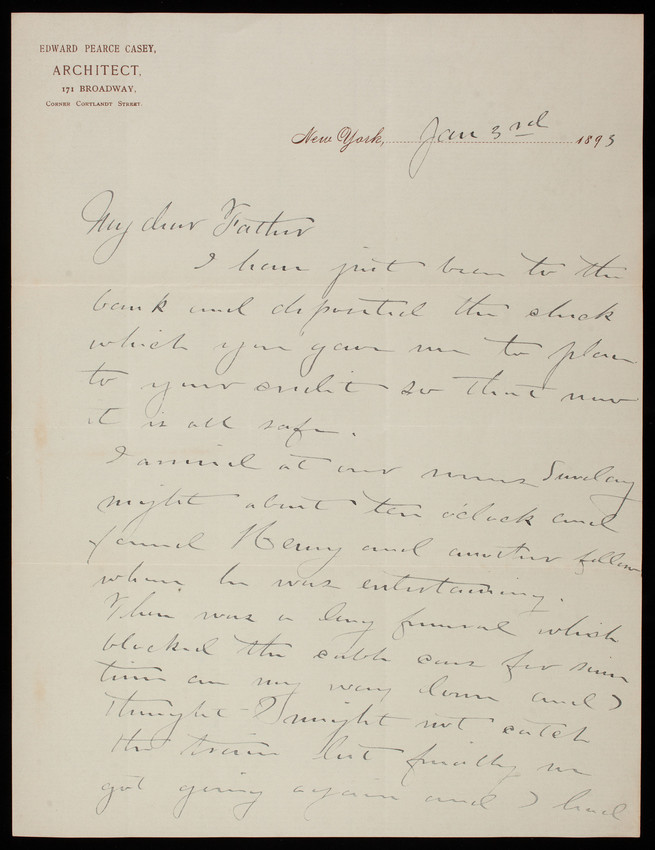 EDWARD PEARCE CASEY,
ARCHITECT,
171 BROADWAY,
CORNER CORTLANDT STREET.
New York, Jan 3rd 1893
My dear Father
I have just been to the
bank and deposited the check
which you gave me to place
to your credit so that now
it is all safe.
I arrived at our rooms Sunday
night about ten o'clock and
found Henry and another fellow
whom he was entertaining.
There was a long funeral which
blocked the cable cars for some
time on my way down and I
thought I might not catch
the train but finally we
got going again and I had